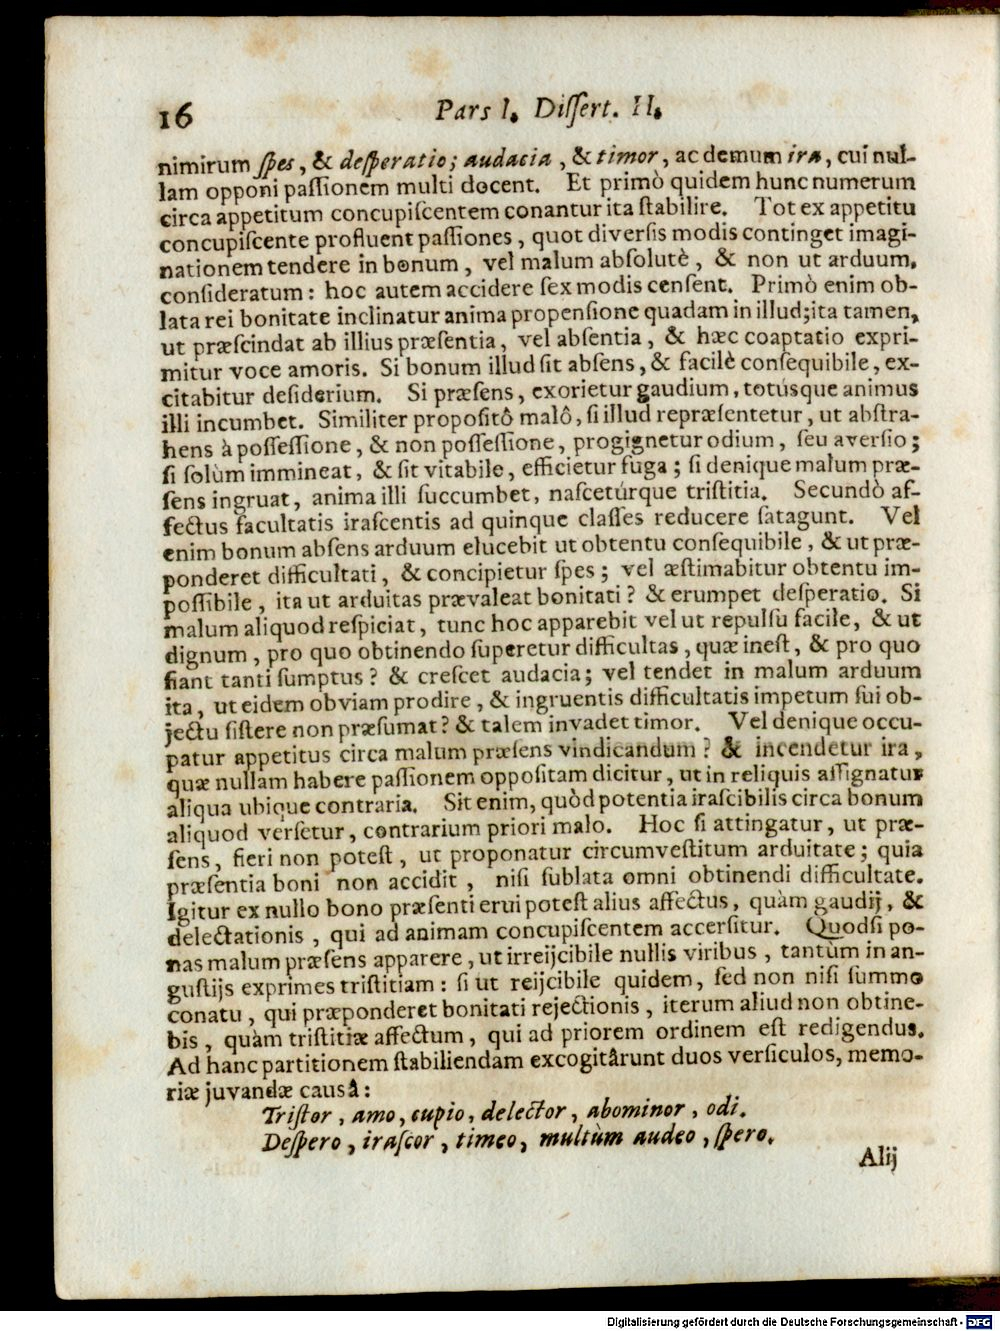 16 Pars I. Dissert. II.
nimirum spes, & desperatio; audacia, & timor, ac demum ira, cui nul-
lam opponi passionem multi docent. Et primò quidem hunc numerum
circa appetitum concupiscentem conantur ita stabilire. Tot ex appetitu
concupiscente profluent passiones, quot diversis modis continget imagi-
nationem tendere in bonum, vel malum absolutè, & non ut arduum,
consideratum: hoc autem accidere sex modis censent. Primò enim ob-
lata rei bonitate inclinatur anima propensione quadam in illud; ita tamen,
ut præscindat ab illius præsentia, vel absentia, & hæc coaptatio expri-
mitur voce amoris. Si bonum illud sit absens, & facilè consequibile, ex-
citabitur desiderium. Si præsens, exorietur gaudium, totúsque animus
illi incumbet. Similiter propositô malô, si illud repræsentetur, ut abstra-
hens à possessione, & non possessione, progignetur odium, seu aversio;
si solùm immineat, & sit vitabile, efficietur fuga; si denique malum præ-
sens ingruat, anima illi succumbet, nascetúrque tristitia. Secundò af-
fectus facultatis irascentis ad quinque classes reducere satagunt. Vel
enim bonum absens arduum elucebit ut obtentu consequibile, & ut præ-
ponderet difficultati, & concipietur spes; vel æstimabitur obtentu im-
possibile, ita ut arduitas prævaleat bonitati? & erumpet desperatio. Si
malum aliquod respiciat, tunc hoc apparebit vel ut repulsu facile, & ut
dignum, pro quo obtinendo superetur difficultas, quæ inest, & pro quo
fiant tanti sumptus? & crescet audacia; vel tendet in malum arduum
ita, ut eidem obviam prodire, & ingruentis difficultatis impetum sui ob-
jectu sistere non præsumat? & talem invadet timor. Vel denique occu-
patur appetitus circa malum præsens vindicandum? & incendetur ira,
quæ nullam habere passionem oppositam dicitur, ut in reliquis assignatur
aliqua ubique contraria. Sit enim, quòd potentia irascibilis circa bonum
aliquod versetur, contrarium priori malo. Hoc si attingatur, ut præ-
sens, fieri non potest, ut proponatur circumvestitum arduitate; quia
præsentia boni non accidit, nisi sublata omni obtinendi difficultate.
Igitur ex nullo bono præsenti erui potest alius affectus, quàm gaudij, &
delectationis, qui ad animam concupiscentem accersitur. Quodsi po-
nas malum præsens apparere, ut irreijcibile nullis viribus, tantùm in an-
gustijs exprimes tristitiam: si ut reijcibile quidem, sed non nisi summo
conatu, qui præponderet bonitati rejectionis, iterum aliud non obtine-
bis, quàm tristitiæ affectum, qui ad priorem ordinem est redigendus.
Ad hanc partitionem stabiliendam excogitârunt duos versiculos, memo-
riæ juvandæ causâ:
Tristor, amo, cupio, delector, abominor, odi.
Despero, irascor, timeo, multùm audeo, spero.
Alij
Digitalisierung gefördert durch die Deutsche Forschungsgemeinschaft - DFG